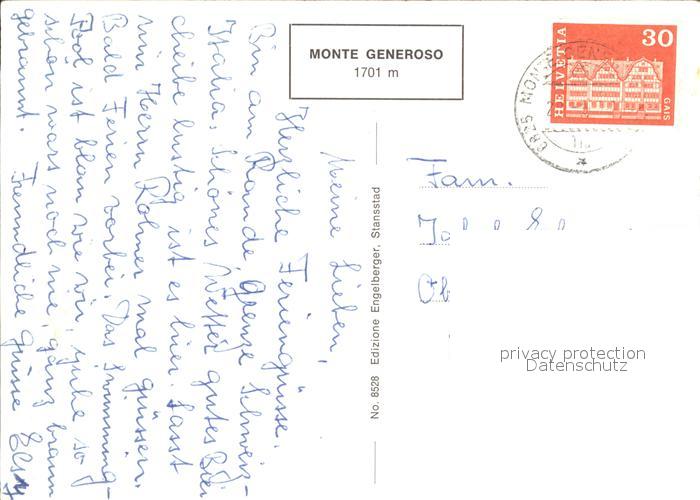 MONTE GENEROSO
1701 m
HELVETIA
30
GAIS
6825 MONTE GENEROSO
Meine Lieben,
Herzliche Feriengrüsse.
Bin am Rande Grenze Schweiz-
Italia. Schönes Wetter gutes
cheibe lustig ist es hier. Lasst
mir Herrn Rohner mal grüssen.
Bald Ferien vorbei. Das Swimming-
Pool ist blau wie wir, juhe so
schön wars noch nie, ganz braun
gebrannt. Freundliche Grüsse Elsy
No. 8528 Edizione Engelberger, Stansstad
Fam.
privacy protection
Datenschutz